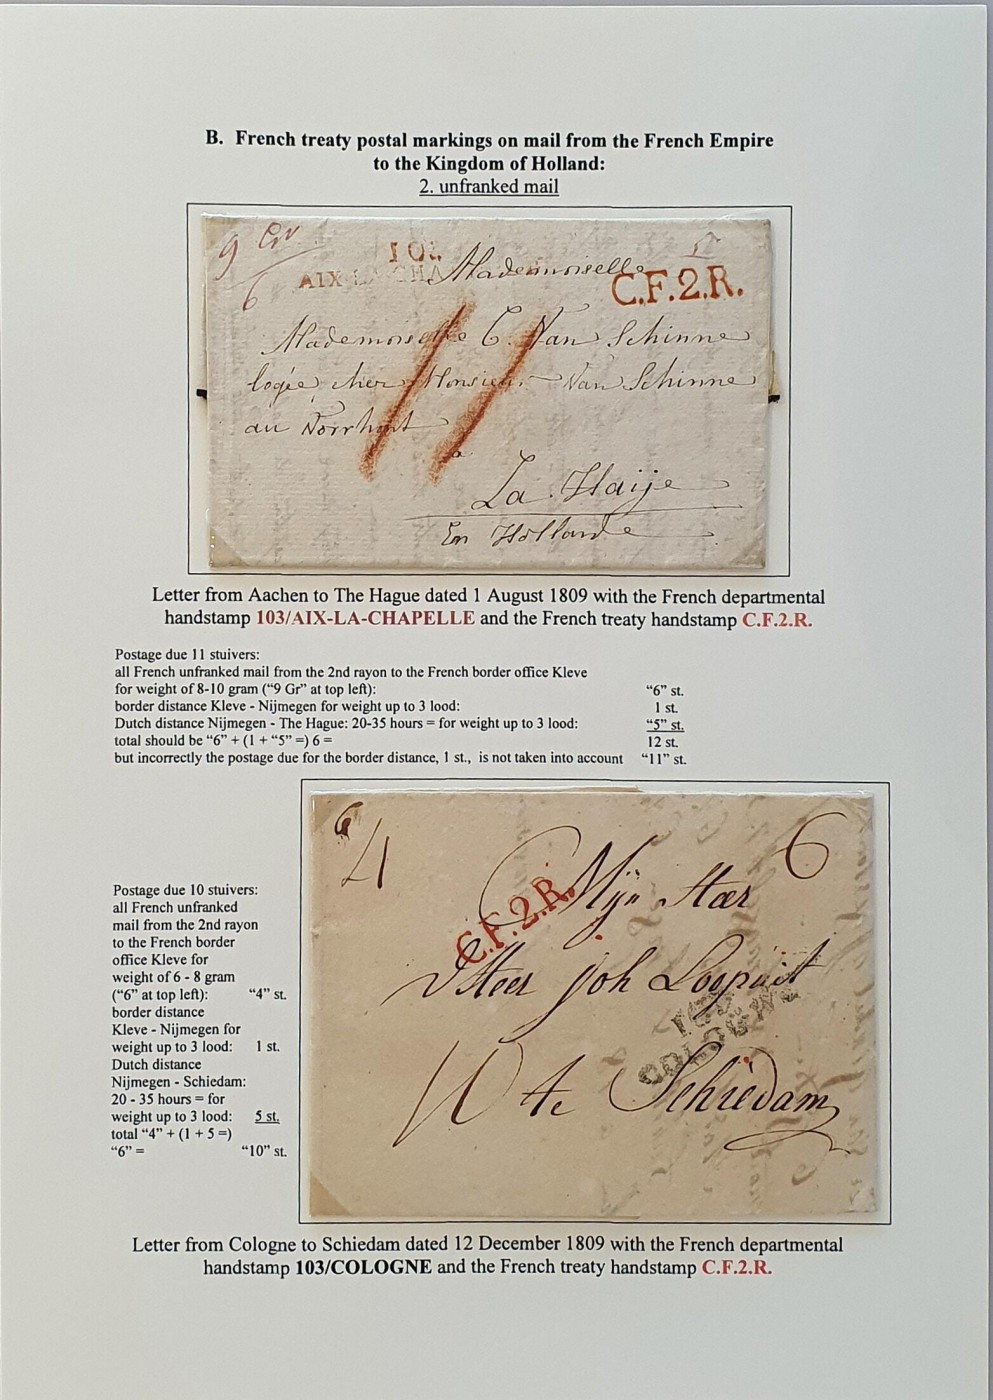 B. French treaty postal markings on mail from the French Empire
to the Kingdom of Holland:
2. unfranked mail
9 Gr
6
103
AIX-LA-CHA
Mademoiselle
C.F.2.R.
Mademoiselle C. Van Schinne
logée chez Monsieur Van Schinne
au Vorrhout
11
a
La Haije
En Hollande
Letter from Aachen to The Hague dated 1 August 1809 with the French departmental
handstamp 103/AIX-LA-CHAPELLE and the French treaty handstamp C.F.2.R.
Postage due 11 stuivers:
all French unfranked mail from the 2nd rayon to the French border office Kleve
for weight of 8-10 gram ("9 Gr" at top left): "6" st.
border distance Kleve - Nijmegen for weight up to 3 lood: 1 st.
Dutch distance Nijmegen - The Hague: 20-35 hours = for weight up to 3 lood: "5" st.
total should be "6" + (1 + "5" =) 6 = 12 st.
but incorrectly the postage due for the border distance, 1 st., is not taken into account "11" st.
6
4
6
C.F.2.R.
Mijn Heer
d'Heer Joh Loopuit
103
COLOGNE
10
te Schiedam
Postage due 10 stuivers:
all French unfranked
mail from the 2nd rayon
to the French border
office Kleve for
weight of 6 - 8 gram
("6" at top left): "4" st.
border distance
Kleve - Nijmegen for
weight up to 3 lood: 1 st.
Dutch distance
Nijmegen - Schiedam:
20 - 35 hours = for
weight up to 3 lood: 5 st.
total "4" + (1 + 5 =)
"6" = "10" st.
Letter from Cologne to Schiedam dated 12 December 1809 with the French departmental
handstamp 103/COLOGNE and the French treaty handstamp C.F.2.R.